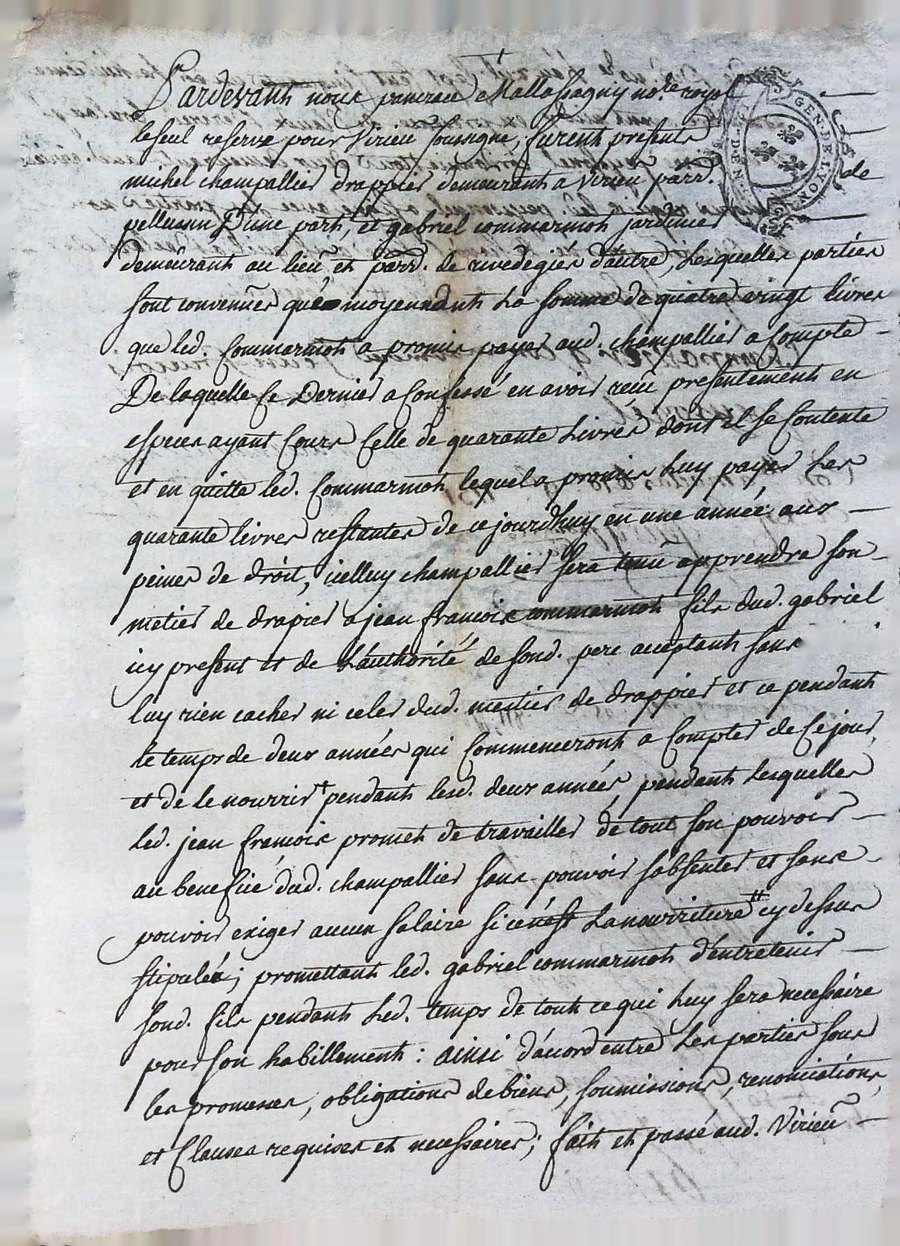 Pardevant nous Mallassagny no.re royal
le seul reservé pour Virieu soussigné, furent presents
michel champallier drappier demeurant a Virieu parr. de
pelluann D'une part, et gabriel commarmoh jardinier
demeurant au lieu et parr. de rivedegier d'autre, Lesquelles parties
sont convenües que moyenadnt La somme de quatre vingt livres
que led. Commarmoh a promis payer aud. champallier a compte
De laquelle Ce Dernier a Confessé en avoir reçu presentement en
especes ayant Cours Celle de quarante Livres dont il se Contente
et en quitte led. Commarmoh lequel a promis Luy payer Les
quarante livres restantes de ce jourdhuy en une année aux
peines de droit, icelluy champallier sera tenu apprendre son
metier de drapier a jean francois commarmoh fils dud. gabriel
icy present et de L'authorité de sond. pere acceptant sans
luy rien cacher ni celer dud. mestier de drappier et ce pendant
le temps de deux années qui Commenceront a Compter de Ce jour,
et de le nourrir + pendant lesd. deux années pendant Lesquelles
led. jean francois promet de travailler de tout son pouvoir
au benefice dud. champallier sans pouvoir s'absenter et sans
pouvoir exiger aucun salaire si ce n'est La nourriture # cy dessus
stipulée; promettant led. gabriel commarmoh d'entretenir
sond. fils pendant Led. temps de tout ce qui Luy sera necessaire
pour son habillement: ainsi d'acord entre Les parties sous
les promesses, obligations de biens, soumissions, renonciations,
et Clauses requises et necessaires; fait et passé aud. Virieu
GEN. DE LYON